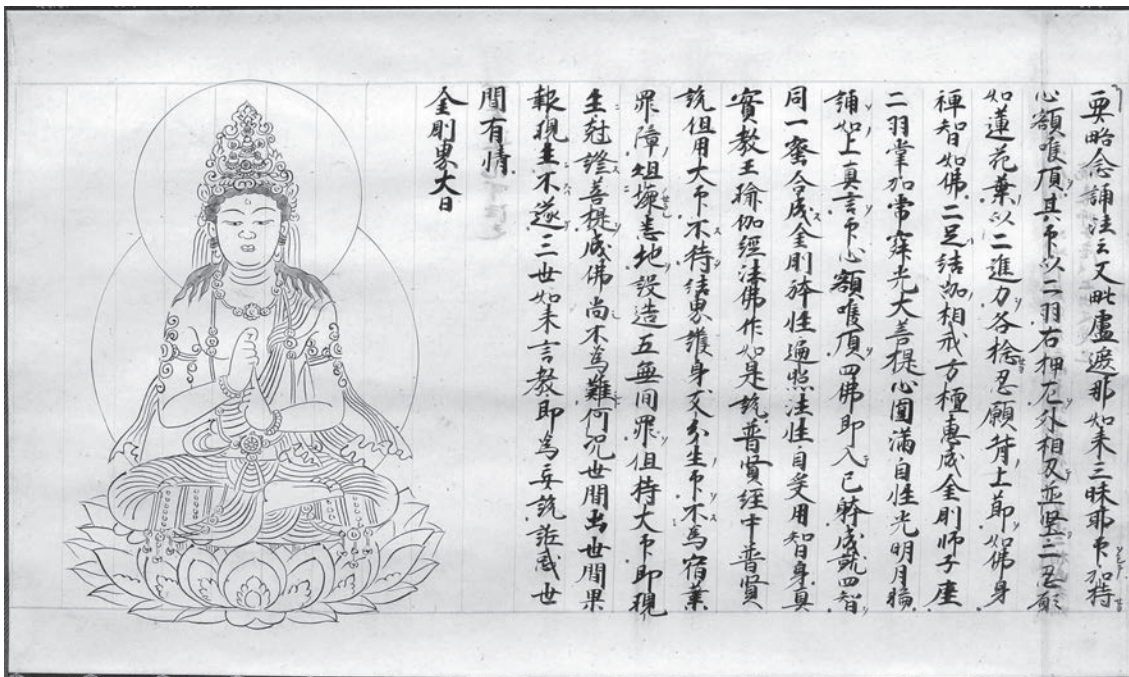 要略念誦法云又毗盧遮那如来三昧耶印加持
心額喉頂其印以二羽右押左外相叉並竪二忍願
如蓮花葉以二進力各捻忍願背上節如佛身
禅智如佛二足結跏相戒方檀恵成金剛師子座
二羽掌如常寂光大菩提心圓満自性光明月輪
誦如上真言印心額喉頂四佛即入己躰成就四智
同一蜜合成金剛躰性遍照法性自受用智身真
實教王瑜伽經法佛作如是說普賢經中普賢
說但用大印不待結界護身又分生印不為宿業
罪障沮壊悉地設造五無間罪但持大印即現
生尅證菩提成佛尚不為難何况世間出世間果
報現生不遂三世如来言教即為妄說誑惑世
間有情
金剛界大日